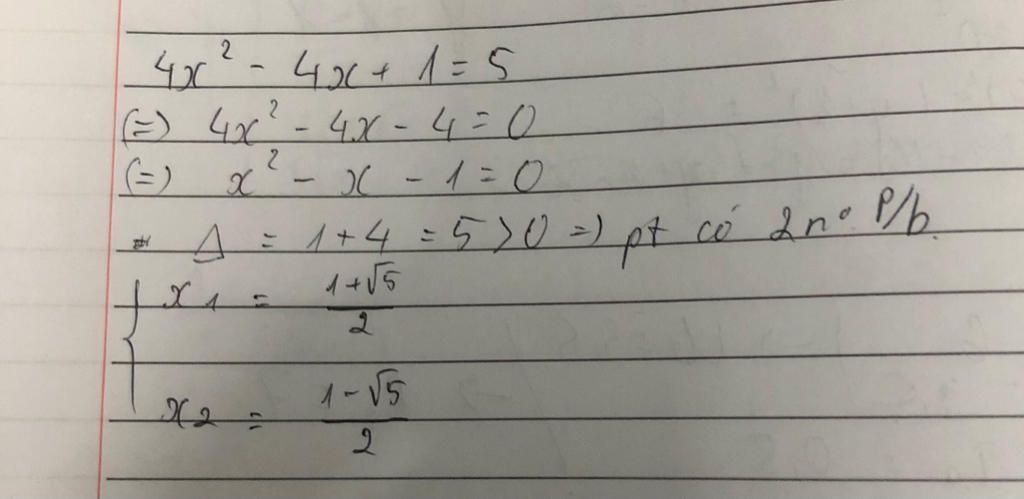 4x² - 4x + 1 = 5
(=) 4x² - 4x - 4 = 0
(=) x² - x - 1 = 0
Δ = 1 + 4 = 5 > 0 =) pt có 2 nº p/b.
x1 = (1+√5)/2
x2 = (1-√5)/2